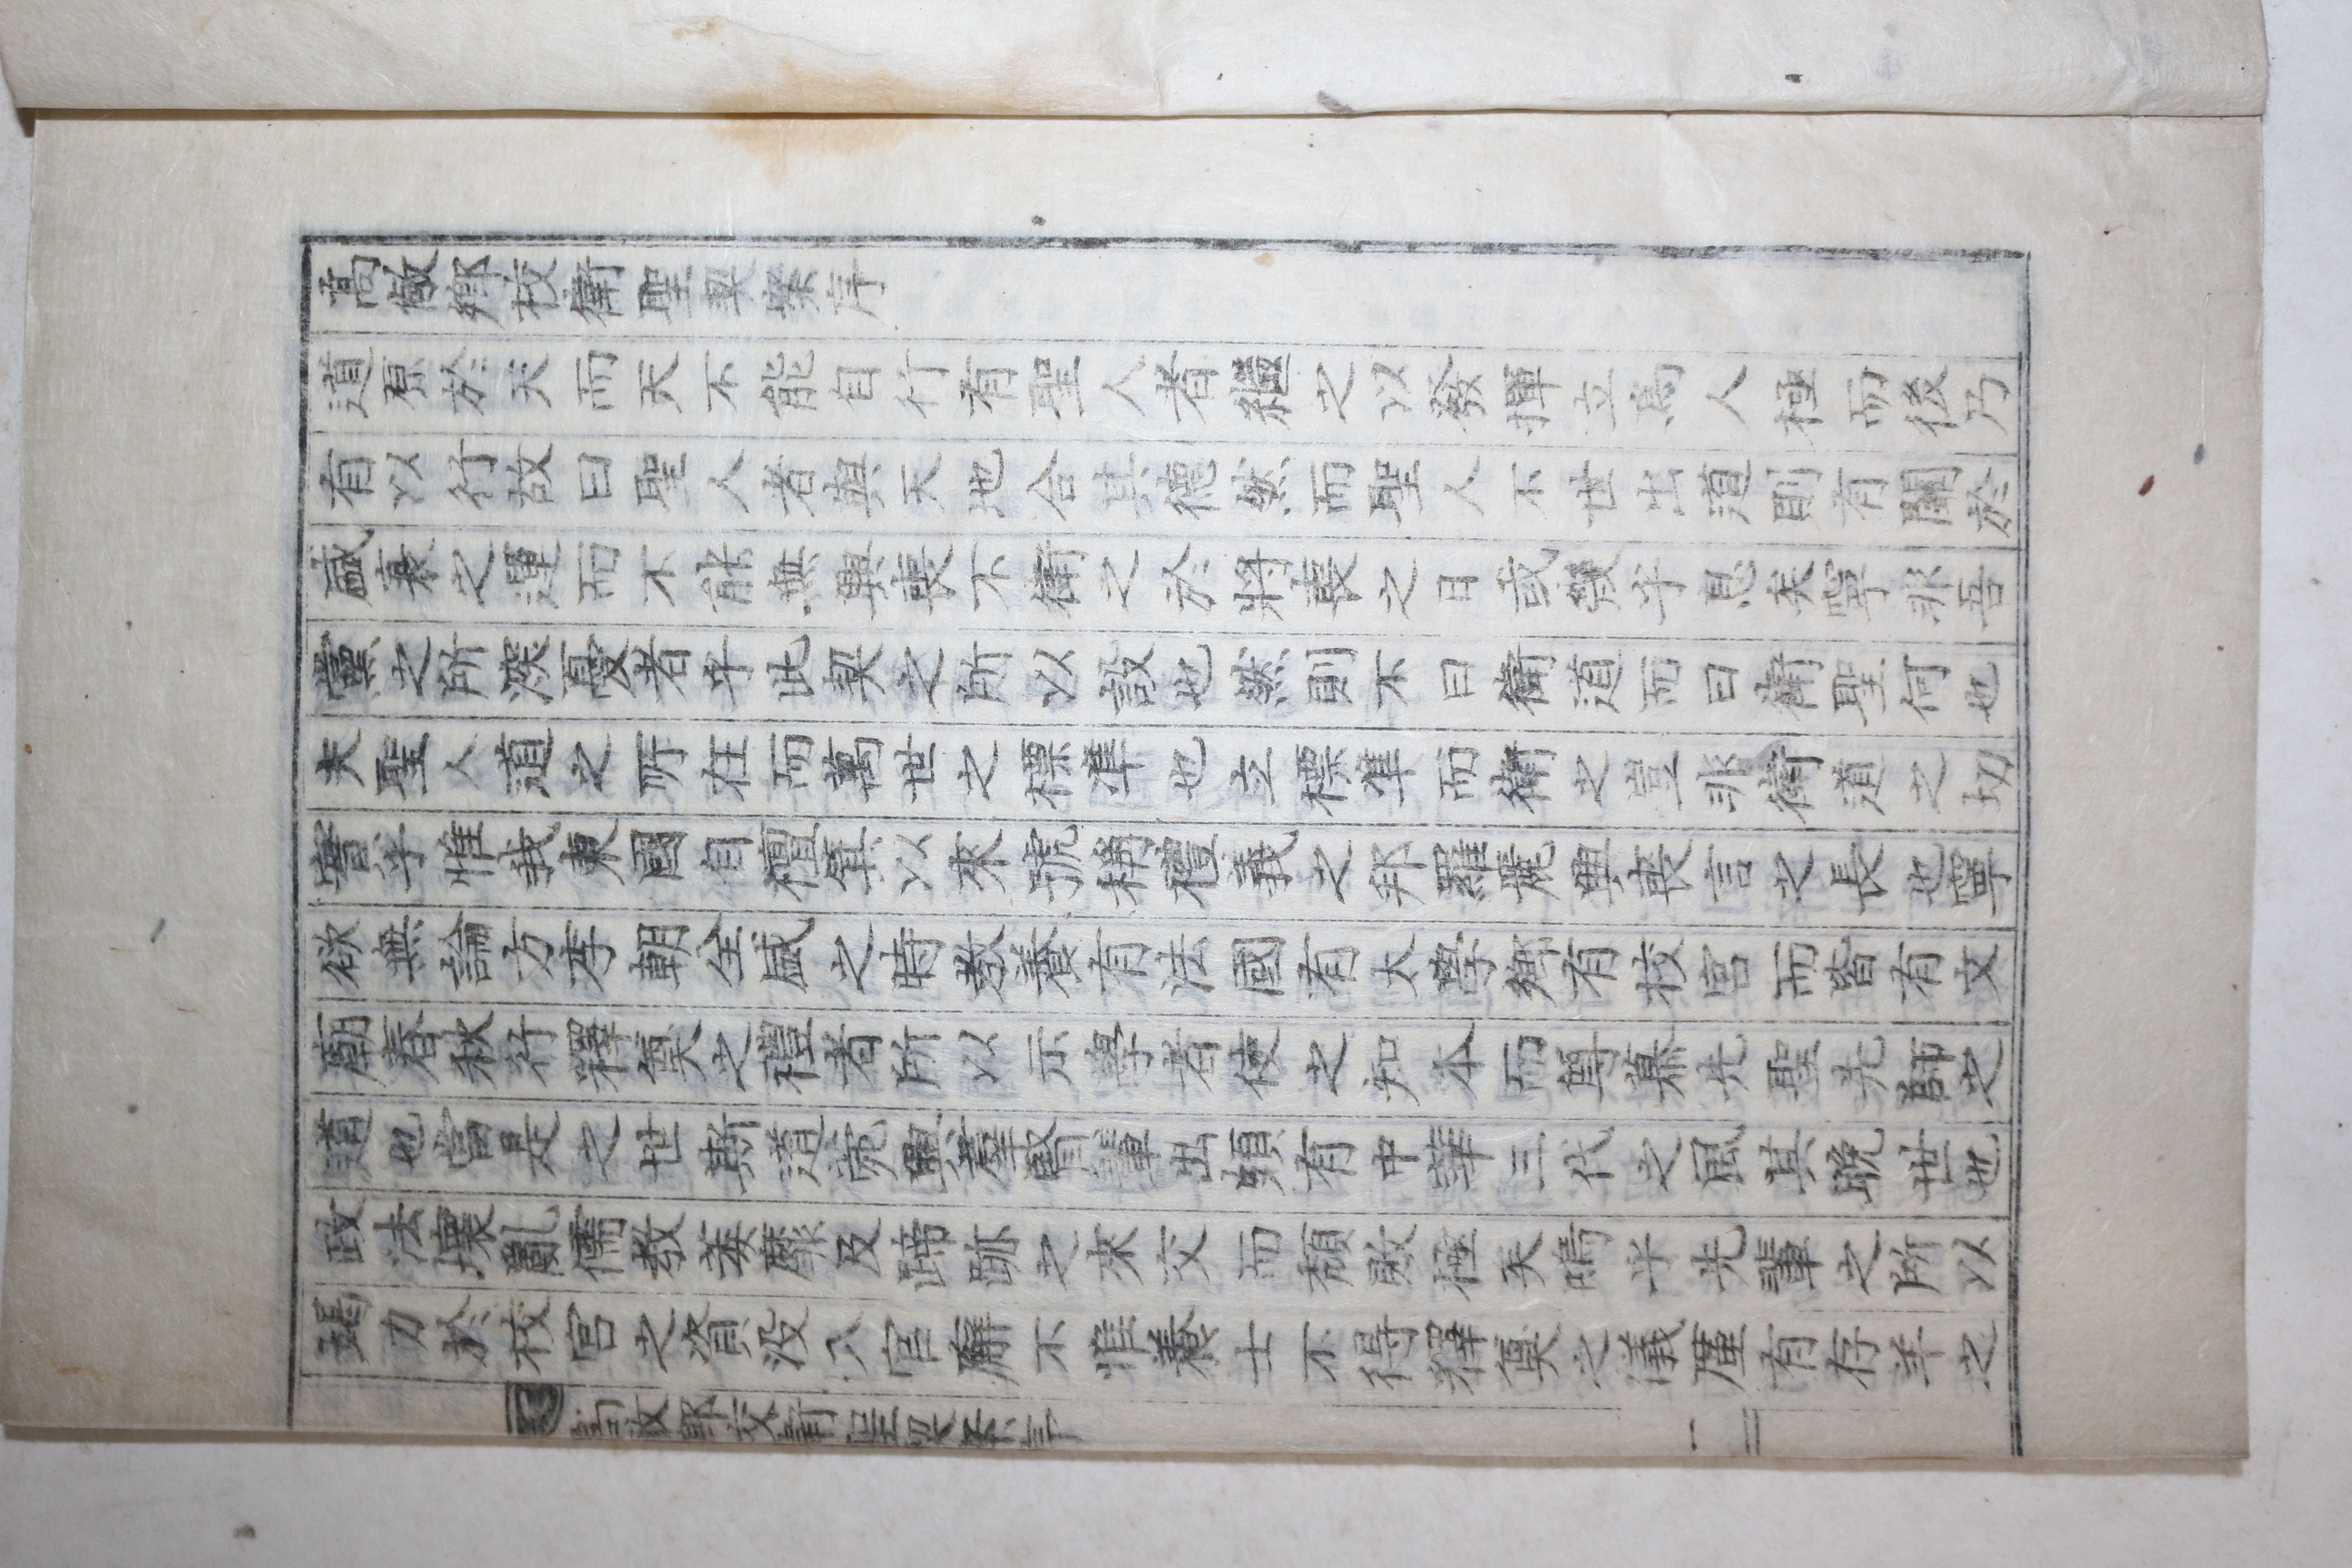 高敞鄉校衛聖契案序
道原於天而天不能自行有聖人者繼之以發揮立爲人極而後乃
有以行故曰聖人者與天地合其德然而聖人不世出道則有關於
盛衰之運而不能無興喪不衛之於將喪之日或幾乎息矣寧非吾
黨之所深憂者乎此契之所以設也然則不曰衛道而曰衛聖何也
夫聖人道之所在而萬世之標準也立標準而衛之豈非衛道之切
實乎惟我東國自檀箕以來號稱禮義之邦羅麗興喪言之長也寧
欲無論方李朝全盛之時敎養有法國有太學鄉有校宮而皆有文
廟春秋行釋奠之禮者所以示學者使之知本而尊慕先聖先師之
道也當是之世斯道宛興羣賢輩出頗有中華三代之風其晩世也
政法壞亂儒敎萎靡及蹄跡之來交而頹敗極矣嗚乎先輩之所以
竭力於校宮之資沒入官廨不惟養士不得釋奠之儀僅有存羊之
高敞鄉校衛聖契案序 一